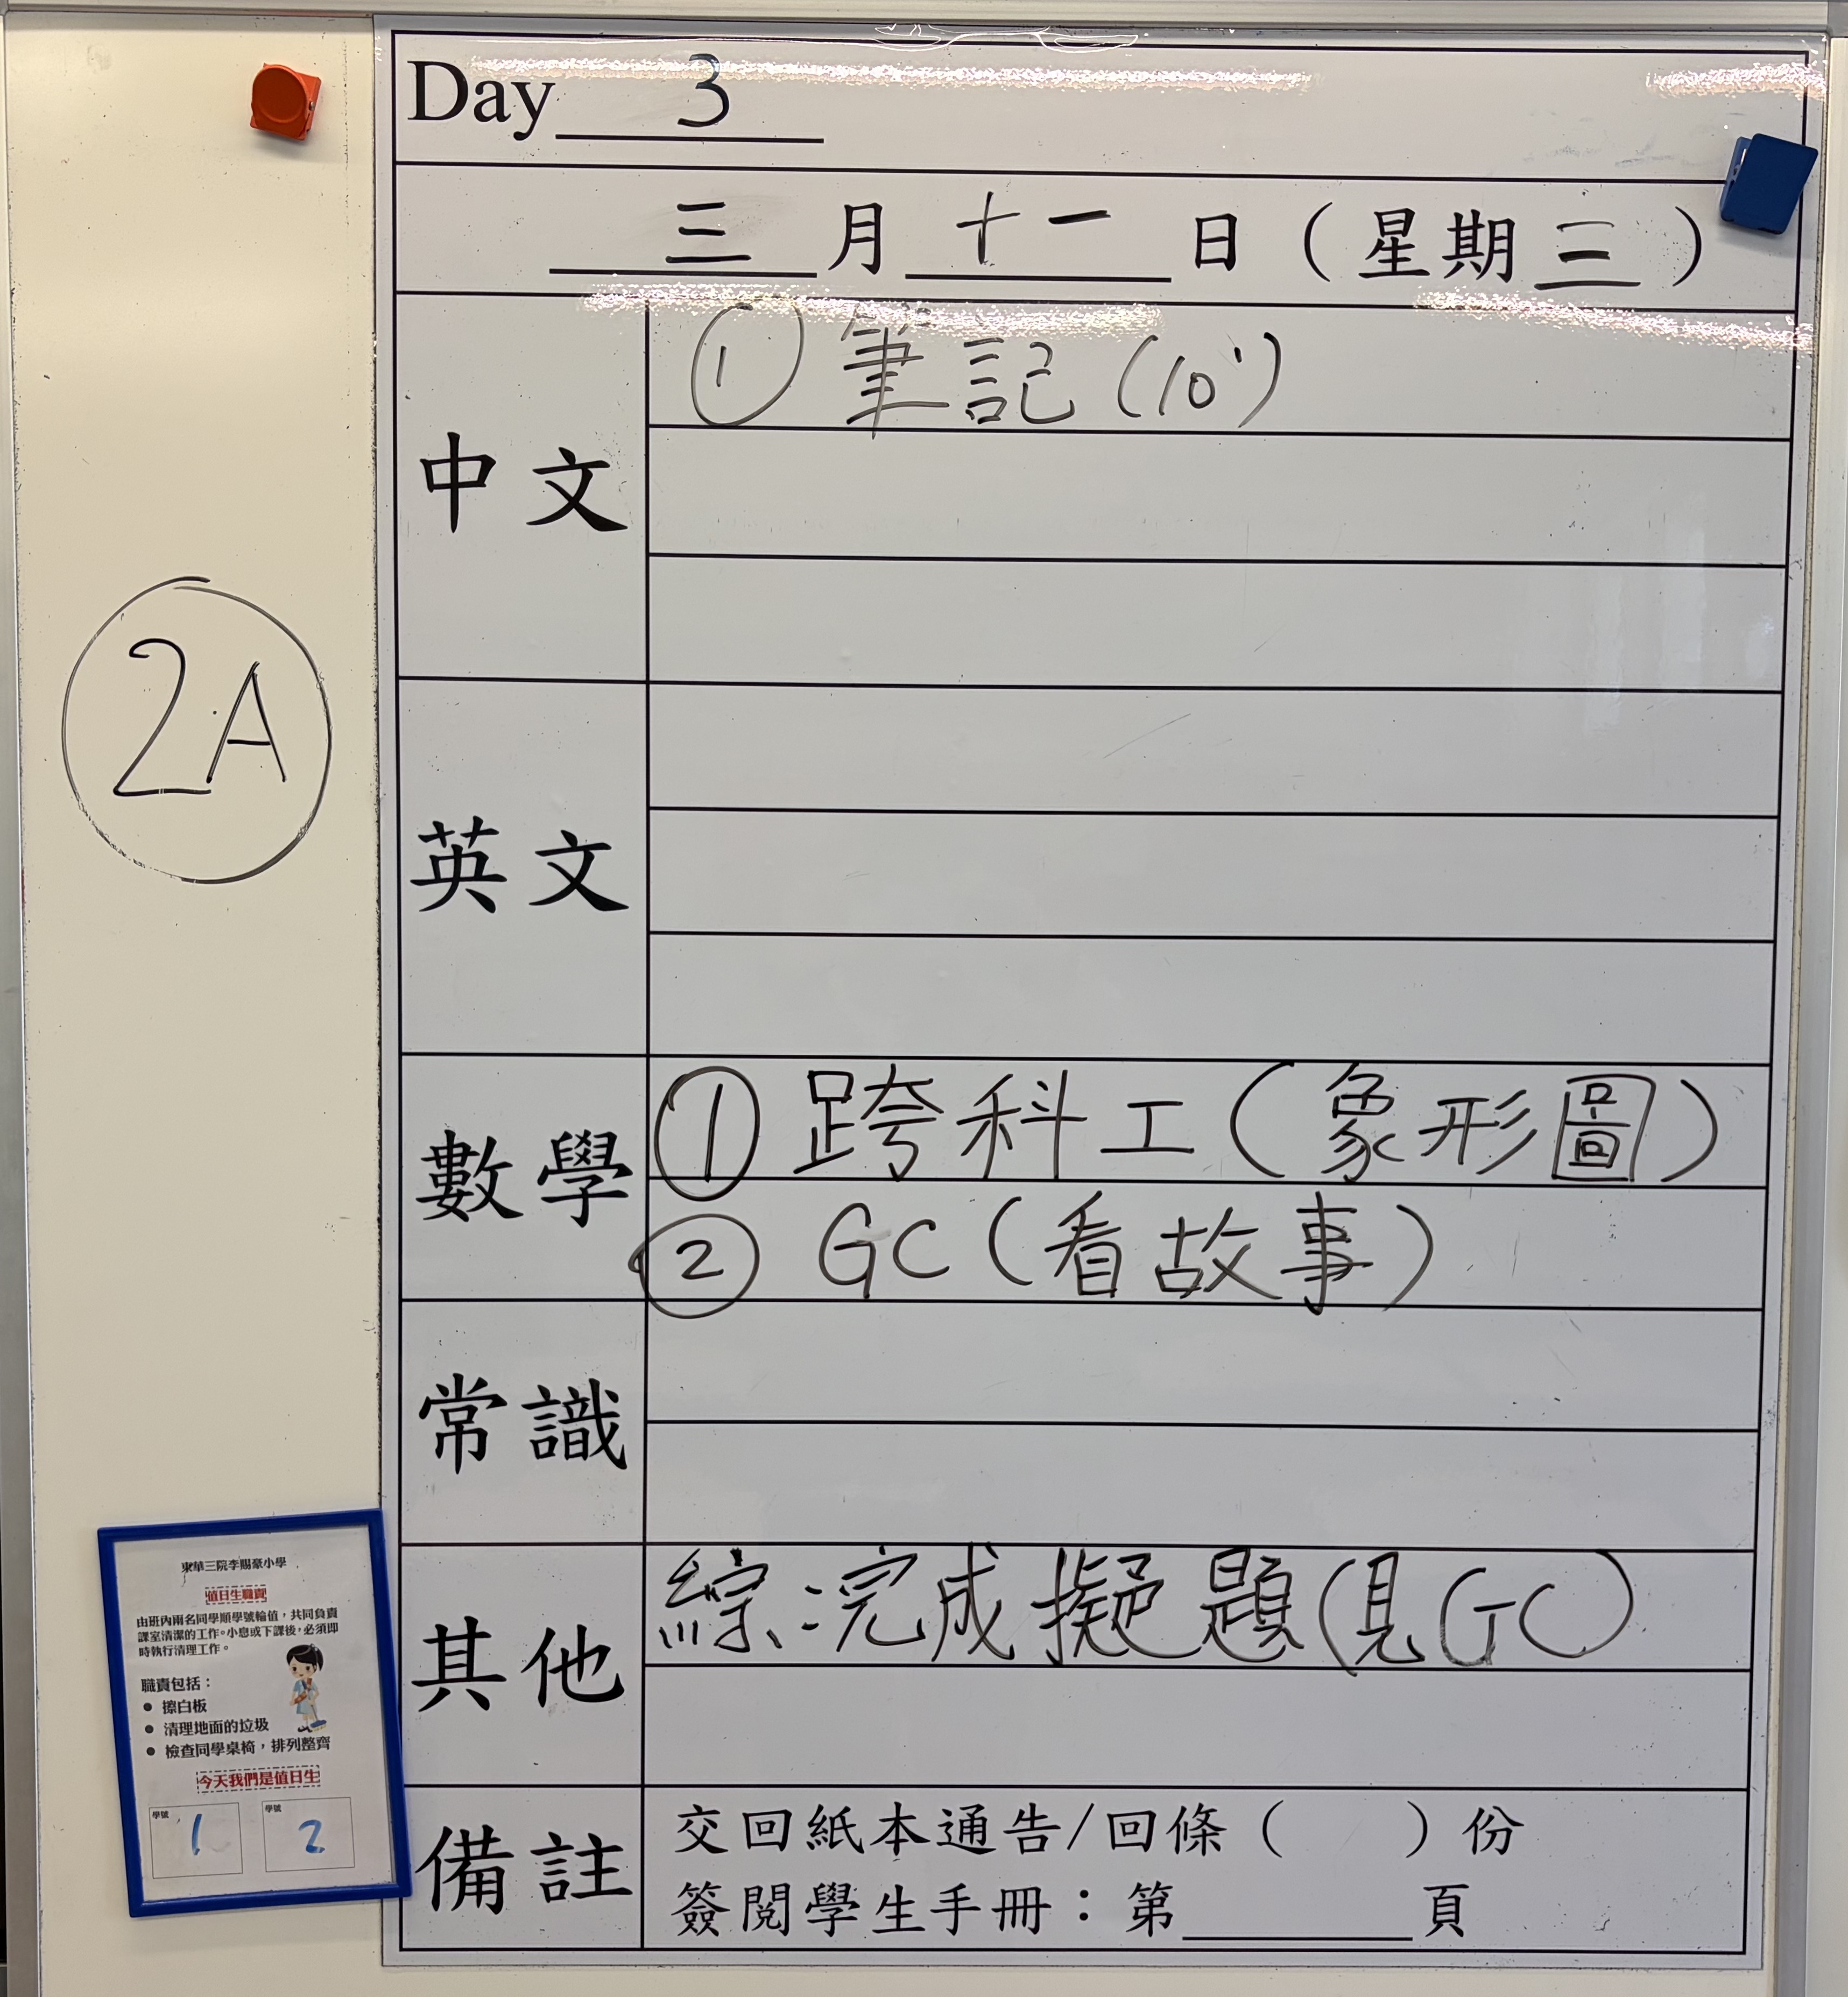 Day 3
三 月 十一 日（星期三）
中文
① 筆記(10')
2A
英文
數學
① 跨科工(象形圖)
② GC(看故事)
常識
其他
綜:完成擬題(見GC)
東華三院李賜豪小學
值日生職責
由班內兩名同學順學號輪值，共同負責
課室清潔的工作。小息或下課後，必須即
時執行清理工作。
職責包括：
● 擦白板
● 清理地面的垃圾
● 檢查同學桌椅，排列整齊
今天我們是值日生
學號 1 學號 2
備註
交回紙本通告/回條（ ）份
簽閱學生手冊：第 頁